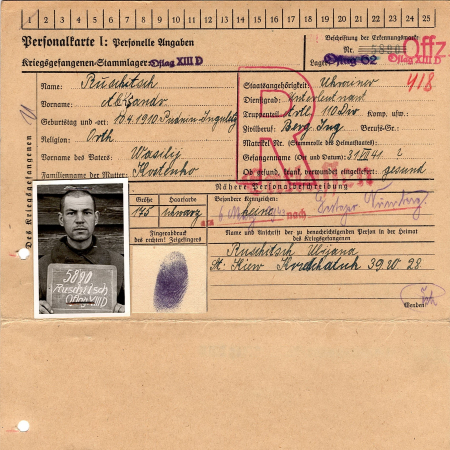 1 2 3 4 5 6 7 8 9 10 11 12 13 14 15 16 17 18 19 20 21 22 23 24 25
Personalkarte I: Personelle Angaben
Kriegsgefangenen-Stammlager: Oflag XIII D
Beschriftung der Erkennungsmarke
Nr. 5890 Offz
Lager: Oflag 62 Oflag XIII D
Des Kriegsgefangenen
Name: Ruschitsch
Vorname: Alexandr
Geburtstag und -ort:
Religion: Orth
Vorname des Vaters: Wasilij
Familienname der Mutter: Kostenko
Staatsangehörigkeit: Ukrainer
418
Dienstgrad: Unterleutnant
Truppenteil: Artl 110 Div Komp. usw.:
Zivilberuf: Berg. Ing Berufs-Gr.:
Matrikel Nr. (Stammrolle des Heimatstaates):
Gefangennahme (Ort und Datum): 31/VII 41 ?
Ob gesund, krank, verwundet eingeliefert: gesund
Nähere Personalbeschreibung
Größe Haarfarbe Besondere Kennzeichen:
175 schwarz keine
am nach
Fingerabdruck
des rechten! Zeigefingers
Name und Anschrift der zu benachrichtigenden Person in der Heimat
des Kriegsgefangenen
Ruschitsch Uljana
St. Kiew 39 W 28
5890
Ruschitsch
Oflag XIII D
Wenden!